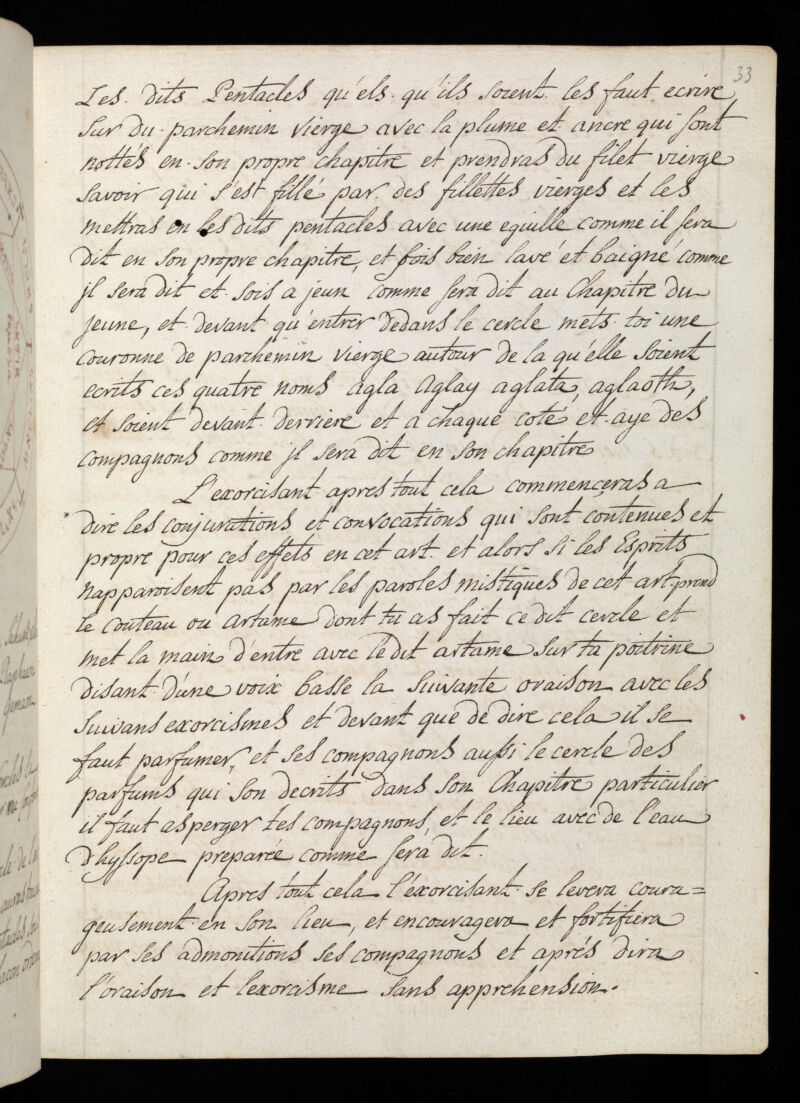 33
Les dits Pentacles qu'els qu'ils soient les faut ecrire
sur du parchemin vierge avec la plume et ancre qui sont
nottés en son propre chapitre et prendras du filet vierge
savoir qui s'est fillé par des fillettes vierges et les
mettras en les dits pentacles avec une eguille comme il sera
dit en son propre chapitre, et sois bien lavé et baigné comme
jl sera dit et sois a jeun comme sera dit au Chapitre du
jeune, et devant qu'entrer dedans le cercle mets toi une
couronne de parchemin vierge autour de la qu'elle soient
ecrits ces quatre noms agla aglay aglata, aglaoth,
et soient devant derriere et a chaque coté et aye des
compagnons comme jl sera dit en son chapitre
L'exorcisant apres tout cela commenceras a
dire les conjurations et convocations qui sont contenues et
propre pour ces effets en cet art. et alors si les Esprits
napparoisent pas par les paroles mistiques de cet art prend
le couteau ou artame dont tu as fait ce dit cercle et
met la main d'entre avec ledit artame sur ta poitrine
disant d'une voix basse la suivante oraison avec les
suivans exorcismes et devant que de dire cela il se
faut parfumer, et ses compagnons aussi le cercle des
parfums qui son decrits dans son Chapitre particulier
il faut asperger tes compagnons, et le lieu avec de l'eau
d'hyssope preparée comme sera dit.
Apres tout cela l'exorcisant se levera coura=
geusement en son lieu, et encouragera et fortifiera
par ses admonitions ses compagnons et aprés dira
l'oraison et lexorcisme sans apprehension.